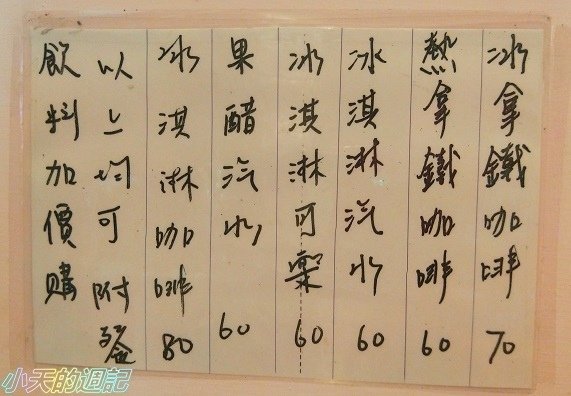 冰拿鐵咖啡 70
熱拿鐵咖啡 60
冰淇淋汽水 60
冰淇淋可樂 60
果醋汽水 60
冰淇淋咖啡 80
以上均可附餐
飲料加價購
小天的週記